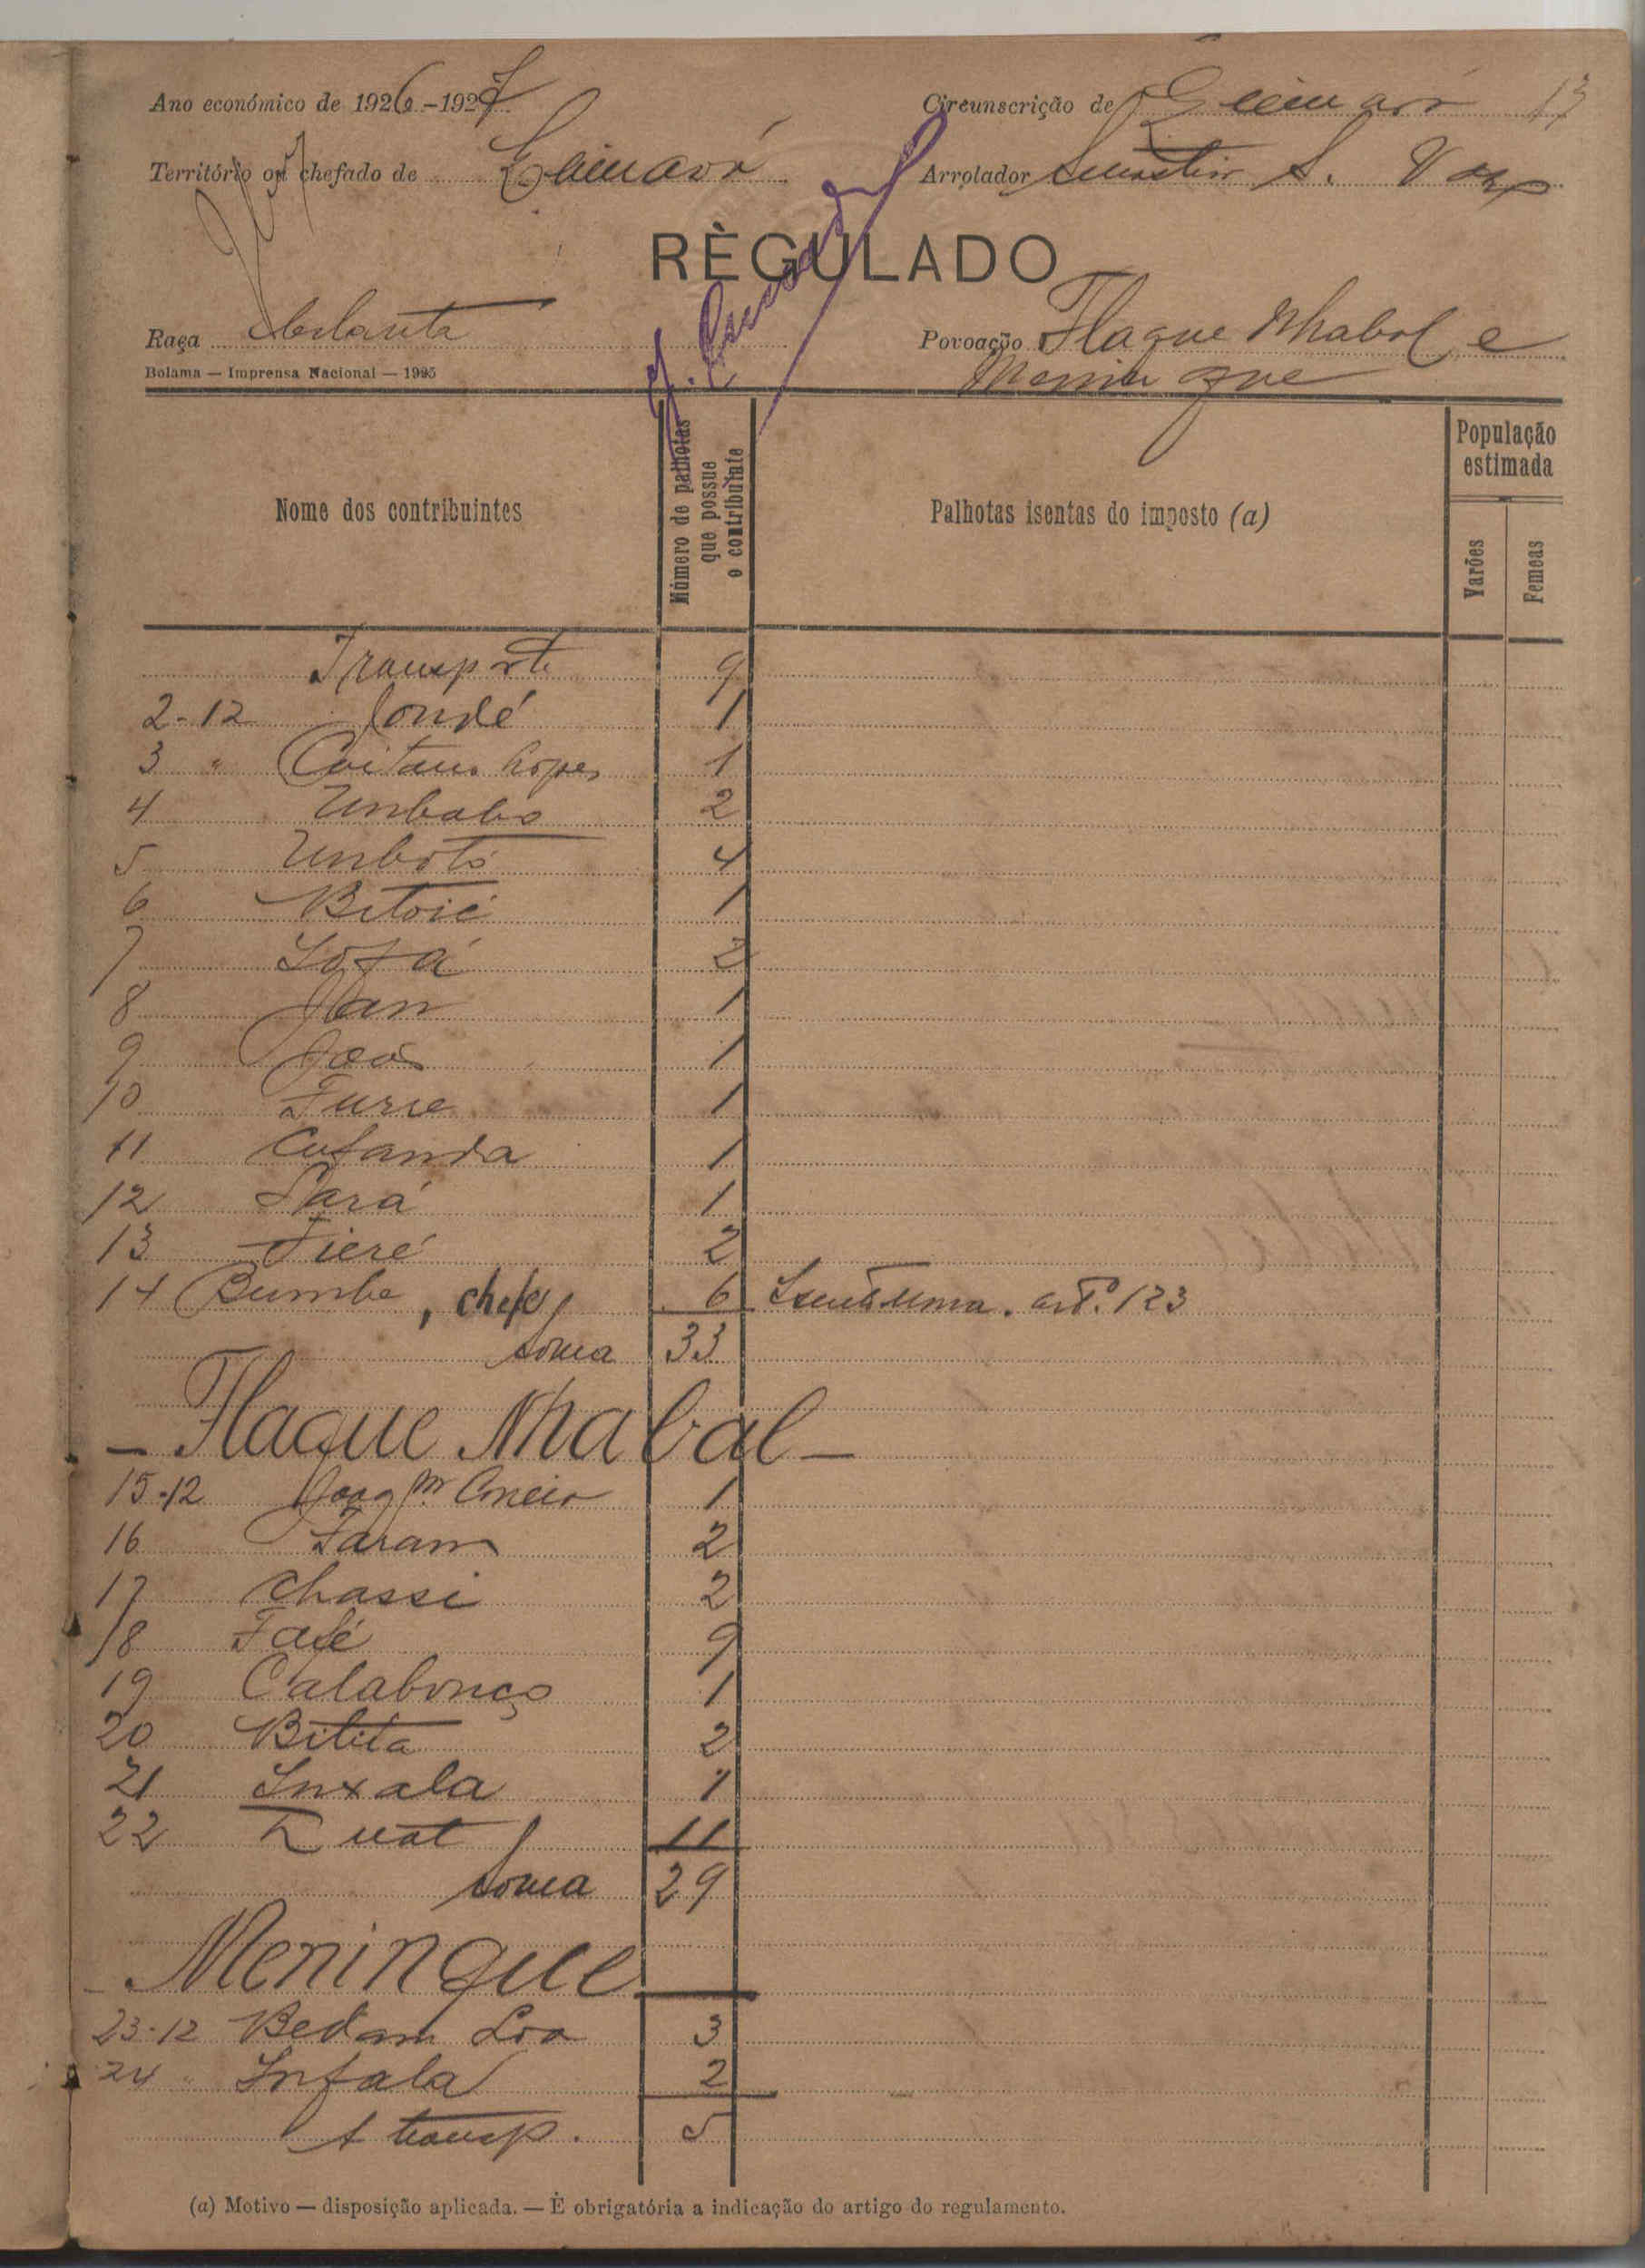 Ano económico de 1926-1927
Circunscrição de 13
Território ou chefado de
Arrolador S. Vaz
RÈGULADO
Raça
Povoação Flaque Nhabal e
Meningue
Bolama — Imprensa Nacional — 1925
Nome dos contribuintes
Número de palhotas que possue o contribuinte
Palhotas isentas do imposto (a)
População estimada
Varões
Femeas
Transporte 9
2-12 Jondé 1
3 " Caitano Lopes 1
4 Unbabo 2
5 Unbotó 4
6 Bitoié 1
7 Sofá 2
8 1
9 João 1
10 Furie 1
11 Cufanda 1
12 Pará 1
13 Fieré 2
14 Bumbe, chefe 6 Isenta uma. artº. 123
Soma 33
— Flaque Nhabal —
15-12 Joaqm. 1
16 Faram 2
17 Chassi 2
18 Fafé 9
19 Calabonço 1
20 Bitita 2
21 Inxala 1
22 Quat 11
Soma 29
— Meningue
23-12 Bedam Loa 3
24 " Infala 2
A transp. 5
(a) Motivo — disposição aplicada. — É obrigatória a indicação do artigo do regulamento.